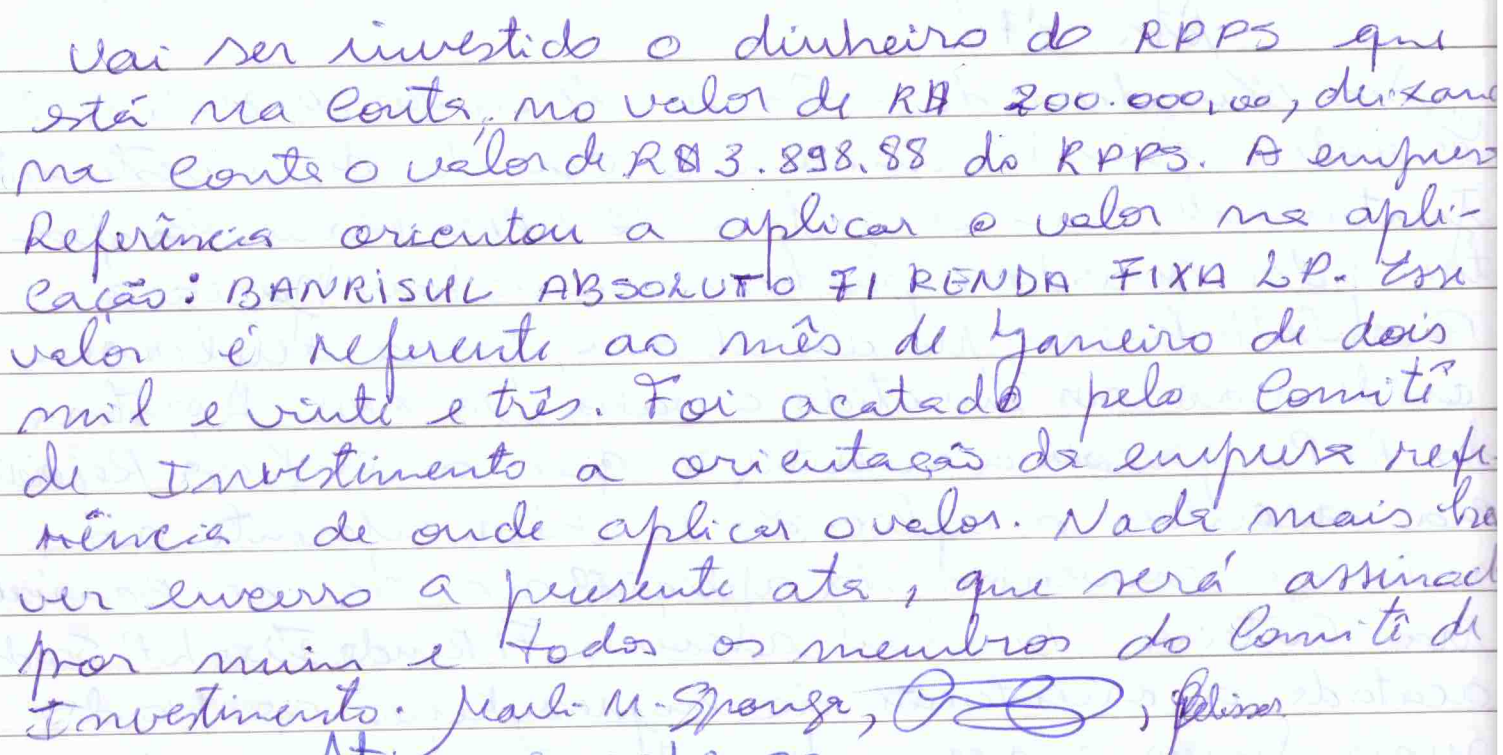 Vai ser investido o dinheiro do RPPS que
está na Conta, no valor de R$ 200.000,00, deixan
na Conta o valor de R$ 3.898.88 do RPPS. A empres
Referência orientou a aplicar o valor na apli-
cação: BANRISUL ABSOLUTO FI RENDA FIXA LP. Esse
valor é referente ao mês de Janeiro de dois
mil e vinte e três. Foi acatado pelo Comitê
de Investimento a orientação da empresa refe
rência de onde aplicar o valor. Nada mais ha
ver encerro a presente ata, que será assinad
por mim e todos os membros do Comitê de
Investimento. Marli M. Sponga,